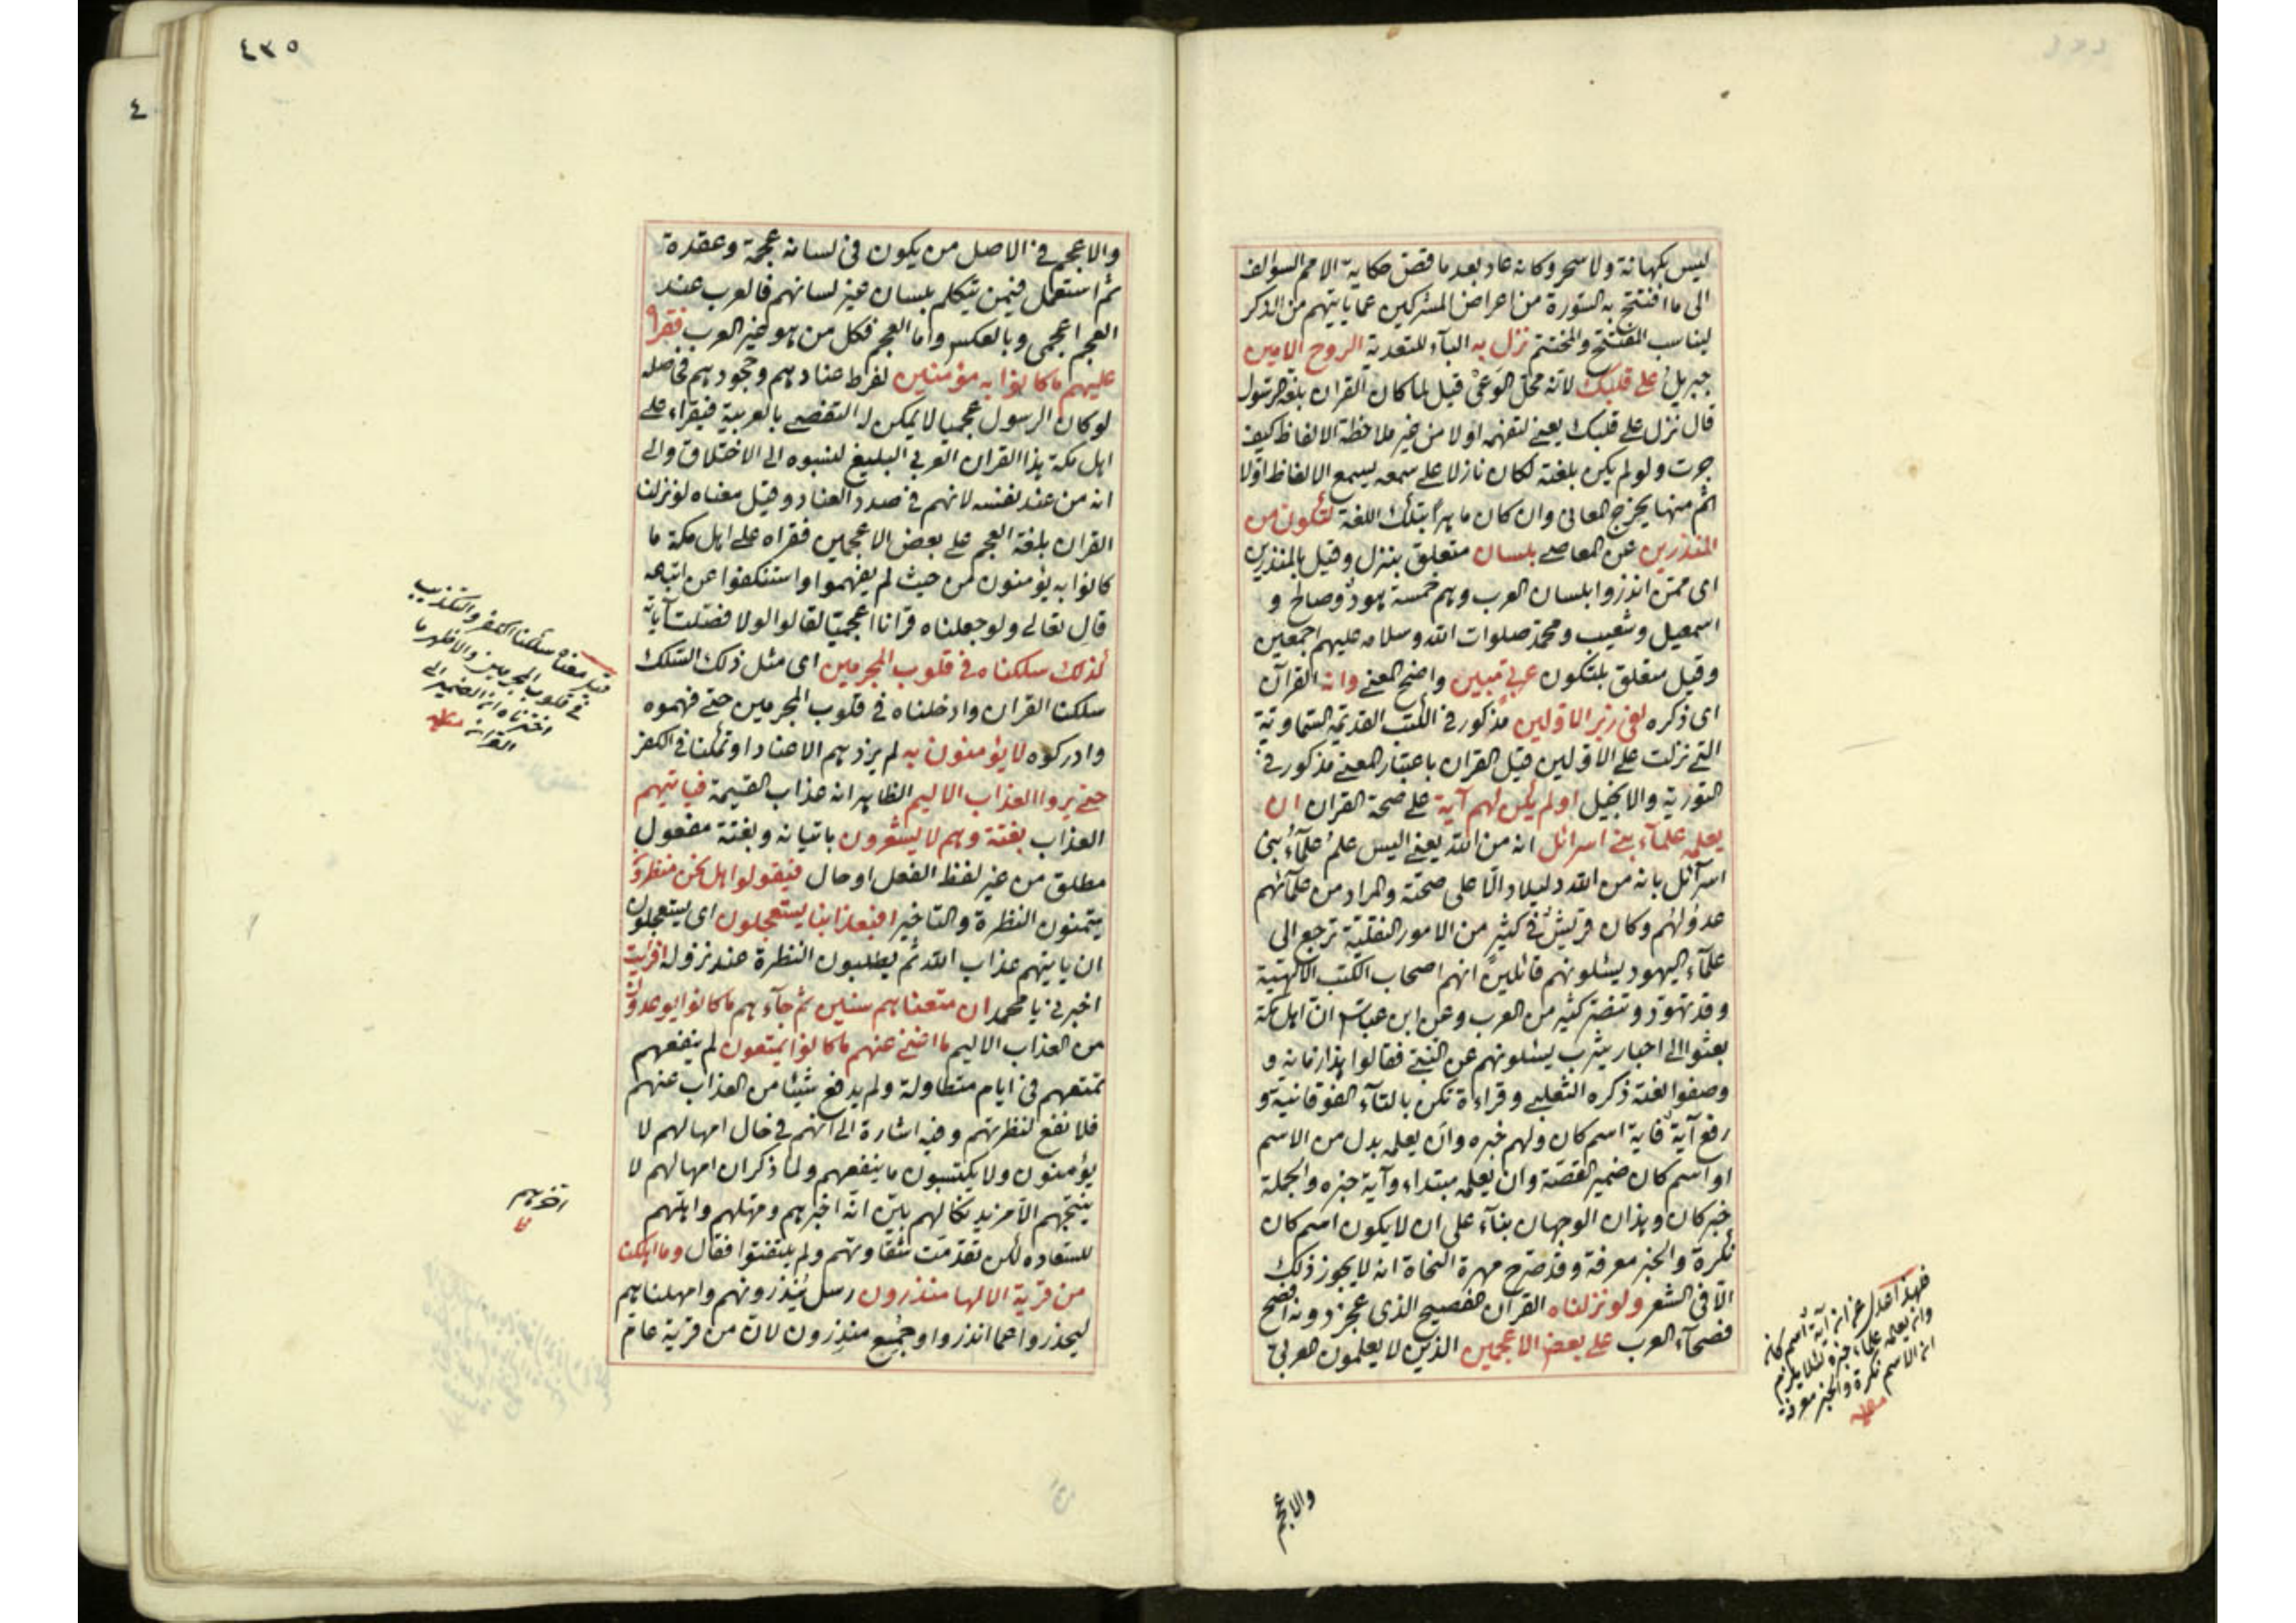 ليس بكهانة ولا سحر وكانه عاد بعد ما قص حكاية الامم السوالف
الى ما افتتح به السورة من اعراض المشركين عما ياتيهم من الذكر
ليناسب المفتتح والمختتم نزل به الباء للتعدية الروح الامين
جبريل على قلبك لانه محل الوعى قيل لما كان القران بلغة الرسول
قال نزل على قلبك يعنى لتفهمه اولا من غير ملاحظة الالفاظ كيف
جرت ولو لم يكن بلغته لكان نازلا على سمعه يسمع الالفاظ اولا
ثم منها يخرج المعانى وان كان ماهرا بتلك اللغة لتكون من
المنذرين عن المعاصى بلسان متعلق بنزل وقيل بالمنذرين
اى ممن انذروا بلسان العرب وهم خمسة هود وصالح و
اسمعيل وشعيب ومحمد صلوات الله وسلامه عليهم اجمعين
وقيل متعلق بلتكون عربى مبين واضح المعنى وانه القرآن
اى ذكره لفى زبر الاولين مذكور فى الكتب القديمة السماوية
التى نزلت على الاولين قبل القران باعتبار المعنى مذكور فى
التورية والانجيل اولم يكن لهم آية على صحة القران ان
يعلمه علمآء بنى اسرائل انه من الله يعنى اليس علم علمآء بنى
اسرآئل بانه من الله دليلا دالا على صحته والمراد من علمآئهم
عدولهم وكان قريش فى كثير من الامور النقلية ترجع الى
علمآء اليهود يسئلونهم قائلين انهم اصحاب الكتب الالهية
وقد تهود وتنصر كثير من العرب وعن ابن عباس ان اهل مكة
بعثوا الى احبار يثرب يسئلونهم عن النبى فقالوا هذا زمانه و
وصفوا لغته ذكره الثعلبى وقراءة تكن بالتآء الفوقانية و
رفع آية فاية اسم كان ولهم خبره وان يعلمه بدل من الاسم
او اسم كان ضمير القصة وان يعلمه مبتداء وآية خبره والجملة
خبر كان وهذان الوجهان بنآء على ان لا يكون اسم كان
نكرة والخبر معرفة وقد صرح مهرة النحاة انه لا يجوز ذلك
الا فى الشعر ولو نزلناه القرآن الفصيح الذى عجز دونه افصح
فصحآء العرب على بعض الاعجمين الذين لا يعلمون العربى
وان يعلمه علمآء خبره لئلا يلزم
ان الاسم نكرة والخبر معرفة
والاعجم
٤٣٥
والاعجم فى الاصل من يكون فى لسانه عجمة وعقدة
ثم استعمل فيمن يتكلم بلسان غير لسانهم فالعرب عند
العجم اعجمى وبالعكس واما العجم فكل من هو غير العرب فقراه
عليهم ما كانوا به مؤمنين لفرط عنادهم وجحودهم فحاصله
لو كان الرسول عجميا لا يمكن له التفصى بالعربية فيقراء على
اهل مكة هذا القران العربى البليغ لنسبوه الى الاختلاق والى
انه من عند نفسه لانهم فى صدد العناد وقيل معناه لو نزلنا
القران بلغة العجم على بعض الاعجمين فقراه على اهل مكة ما
كانوا به يؤمنون من حيث لم يفهموا واستنكفوا عن اتباعه
قال تعالى ولو جعلناه قرانا اعجميا لقالوا لولا فصلت آياته
كذلك سلكناه فى قلوب المجرمين اى مثل ذلك السلك
سلكنا القران وادخلناه فى قلوب المجرمين حتى فهموه
وادركوه لا يؤمنون به لم يزدهم الا عنادا وتمكنا فى الكفر
حتى يروا العذاب الاليم الظاهر انه عذاب القيمة فياتيهم
العذاب بغتة وهم لا يشعرون باتيانه وبغتة مفعول
مطلق من غير لفظ الفعل او حال فيقولوا هل نحن منظرون
يتمنون النظرة والتاخير افبعذابنا يستعجلون اى يستعجلون
ان ياتيهم عذاب الله ثم يطلبون النظرة عند نزوله افرايت
اخبرنى يا محمد ان متعناهم سنين ثم جآءهم ما كانوا يوعدون
من العذاب الاليم ما اغنى عنهم ما كانوا يمتعون لم ينفعهم
تمتعهم فى ايام متطاولة ولم يدفع شيئا من العذاب عنهم
فلا نفع لنظرتهم وفيه اشارة الى انهم فى حال امهالهم لا
يؤمنون ولا يكتسبون ما ينفعهم ولما ذكر ان امهالهم لا
ينتجهم الا مزيد نكالهم بين انه اخبرهم ومهلهم وابتهم
للسعاده لكن تقدمت شقاوتهم ولم يلتفتوا فقال وما اهلكنا
من قرية الا لها منذرون رسل ينذرونهم وامهلناهم
ليحذروا عما انذروا وجمع منذرون لان من قرية عام
قيل معناه سلكنا الكفر والتكذيب
فى قلوب المجرمين والاظهر ما
اخترناه ان الضمير الى
القران